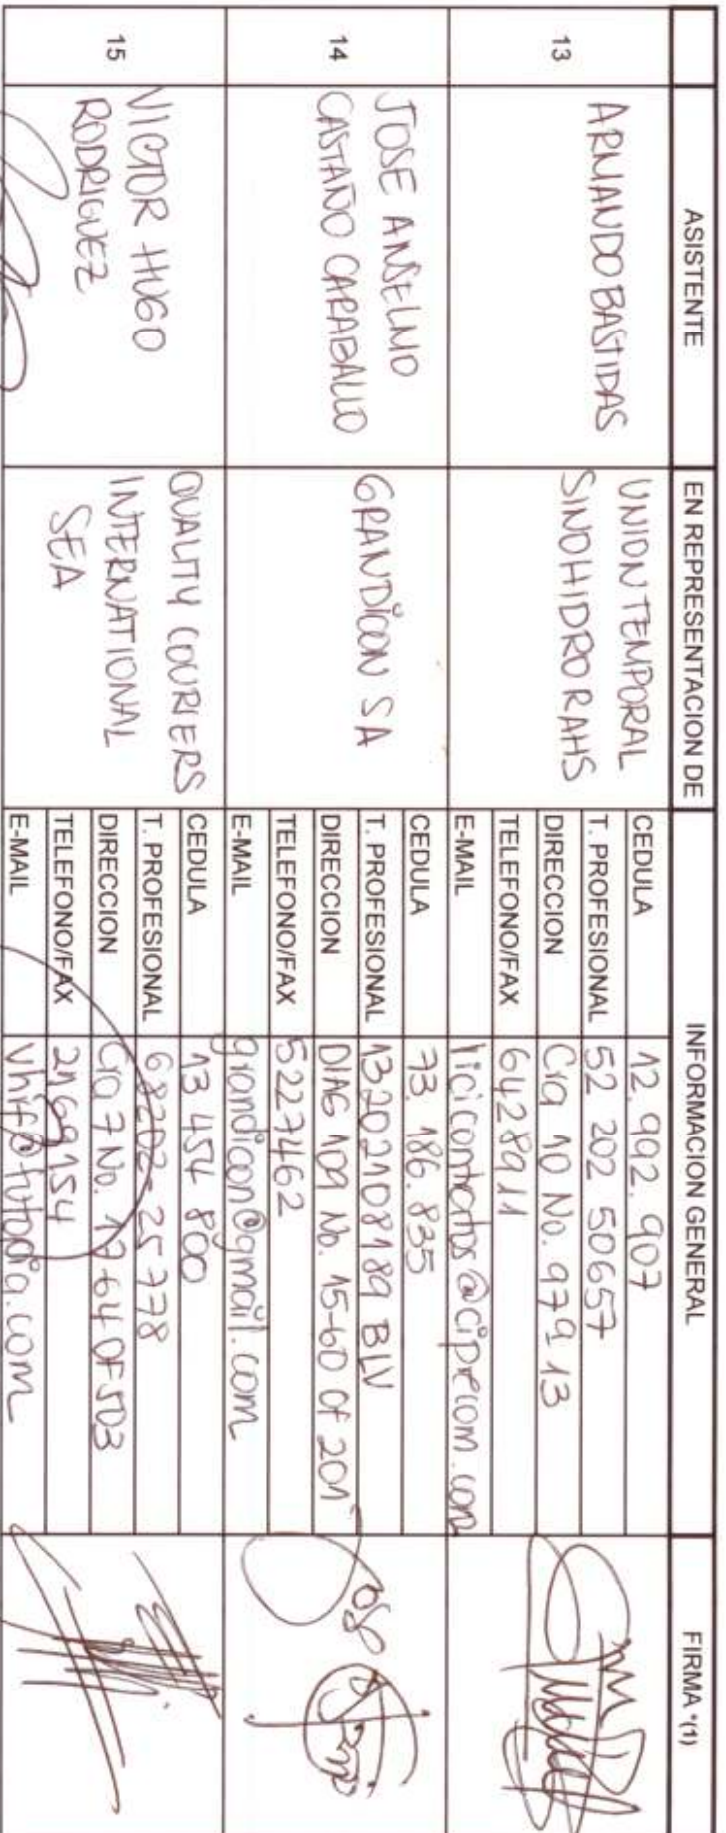 ASISTENTE EN REPRESENTACION DE INFORMACION GENERAL FIRMA *(1)
13
ARMANDO BASTIDAS
UNION TEMPORAL
SINOHIDRO RAHS
CEDULA 12.992.907
T. PROFESIONAL 52 202 50657
DIRECCION Cra 10 No. 979 13
TELEFONO/FAX 6428911
E-MAIL
14
JOSE ANSELMO
CASTAÑO CARABALLO
GRANDICON SA
CEDULA 73.186.835
T. PROFESIONAL 13202108189 BLV
DIRECCION DIAG 109 No. 15-60 Of 201
TELEFONO/FAX 5227462
E-MAIL grandicon@gmail.com
15
VICTOR HUGO
RODRIGUEZ
QUALITY COURIERS
INTERNATIONAL
SEA
CEDULA 13 454 800
T. PROFESIONAL 68202-25778
DIRECCION Cra 7 No. 17 64 OF 503
TELEFONO/FAX 2169154
E-MAIL